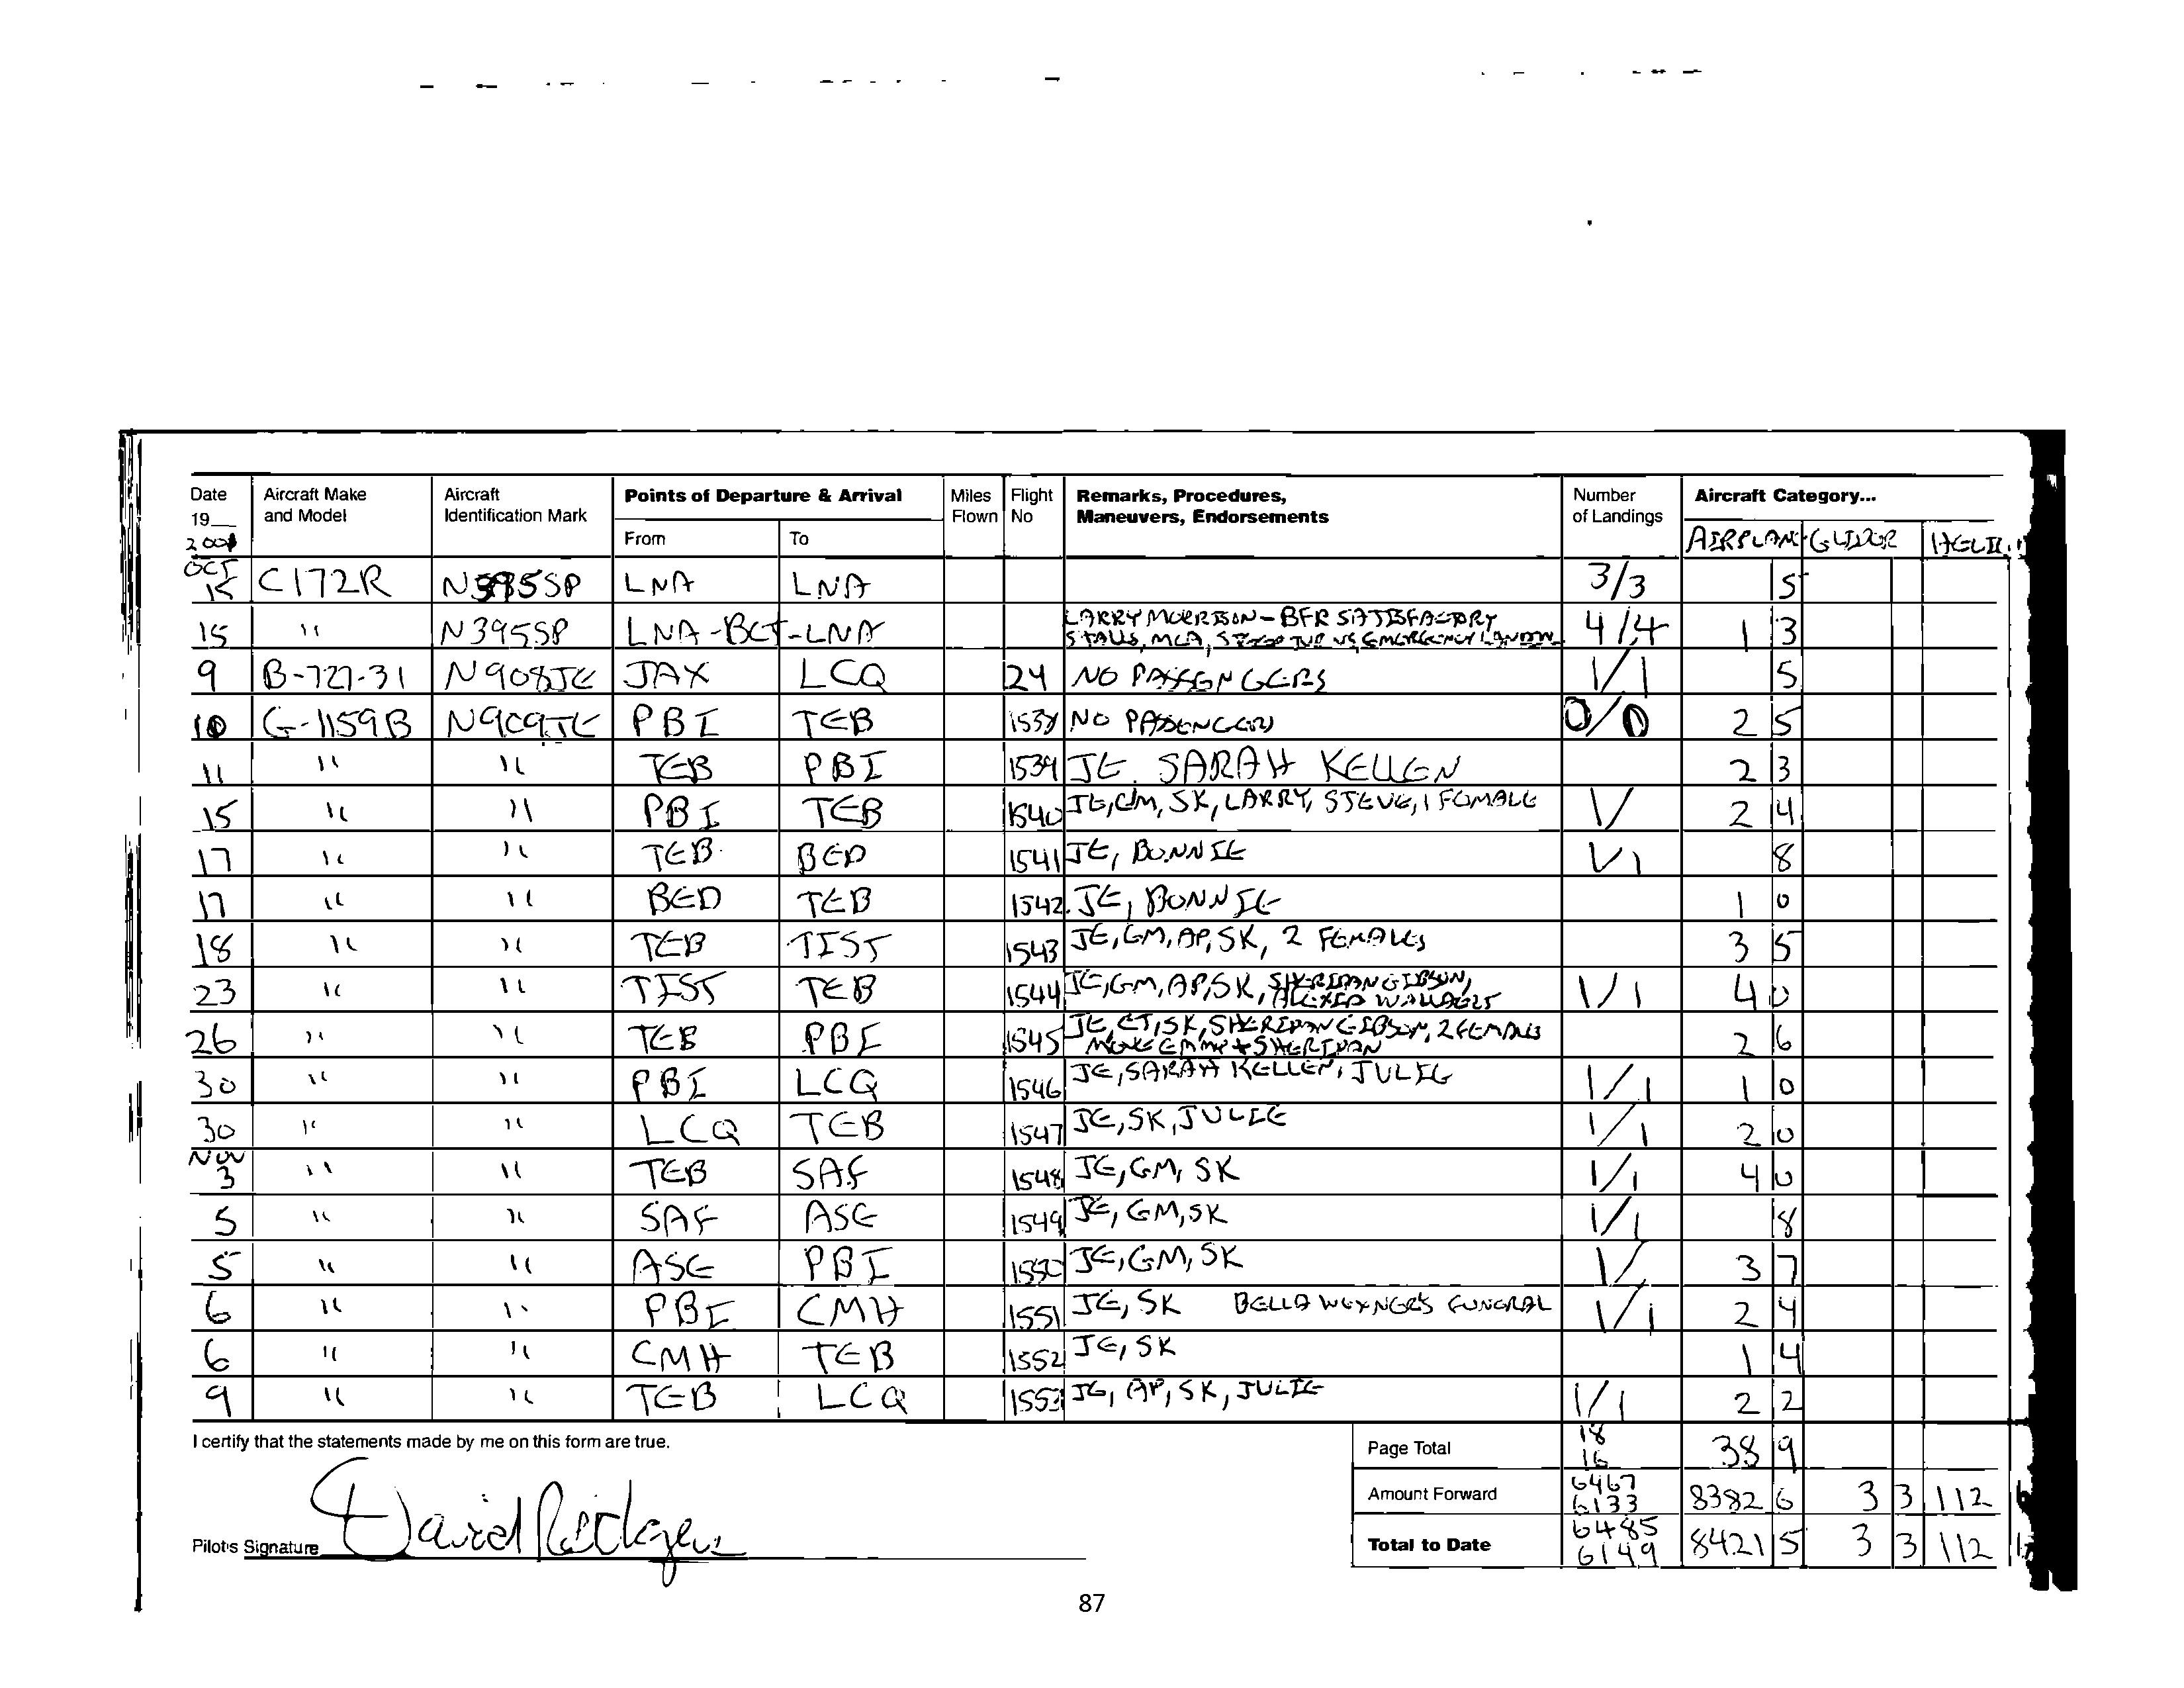 Date Aircraft Make Aircraft Points of Departure & Arrival Miles Flight Remarks, Procedures, Number Aircraft Category...
19__ and Model Identification Mark Flown No Maneuvers, Endorsements of Landings
2001 From To AIRPLANE GLIDER HELI
OCT
15 C172R N395SP LNA LNA 3/3 5
15 " N395SP LNA-BCT-LNA LARRY MORRISON - BFR SATISFACTORY 4/4 1 3
STALLS, MCA, EMERGENCY LANDING
9 B-727-31 N908JE JAX LCQ 24 NO PASSENGERS 1/1 5
10 G-1159B N909JE PBI TEB 1538 NO PASSENGERS 0/0 2 5
11 " " TEB PBI 1539 JE. SARAH KELLEN 2 3
15 " " PBI TEB 1540 JE, GM, SK, LARRY, STEVE, 1 FEMALE 1/ 2 4
17 " " TEB BED 1541 JE, BONNIE 1/1 8
17 " " BED TEB 1542 JE, BONNIE 1 0
18 " " TEB TIST 1543 JE, GM, AP, SK, 2 FEMALES 3 5
23 " " TIST TEB 1544 JE, GM, AP, SK, SHERIDAN GIBSON, 1/1 4 0
26 " " TEB PBI 1545 JE, ET, SK, SHERIDAN GIBSON, 2 FEMALES 2 6
30 " " PBI LCQ 1546 JE, SARAH KELLEN, JULIE 1/1 1 0
30 " " LCQ TEB 1547 JE, SK, JULIE 1/1 2 0
NOV
3 " " TEB SAF 1548 JE, GM, SK 1/1 4 0
5 " " SAF ASE 1549 JE, GM, SK 1/1 8
5 " " ASE PBI 1550 JE, GM, SK 1/ 3 7
6 " " PBI CMH 1551 JE, SK BELLA WEXNER'S FUNERAL 1/1 2 4
6 " " CMH TEB 1552 JE, SK 1 4
9 " " TEB LCQ 1553 JE, AP, SK, JULIE 1/1 2 2
I certify that the statements made by me on this form are true.
Page Total 18 16 38 9
Amount Forward 6467 6133 8382 6 3 3 112
Total to Date 6485 6149 8421 5 3 3 112
Pilot's Signature David Rodgers
87